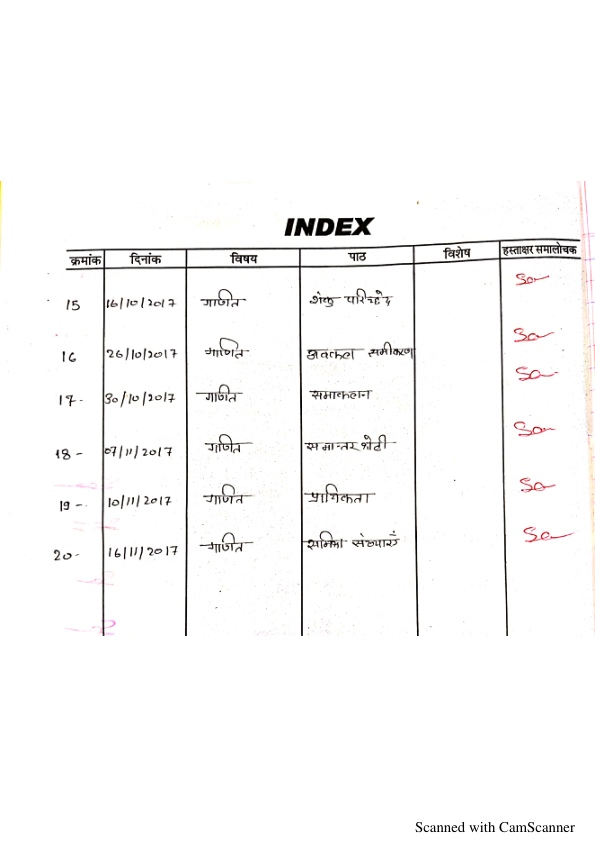 INDEX
क्रमांक दिनांक विषय पाठ विशेष हस्ताक्षर समालोचक
15 16/10/2017 गणित शंकु परिच्छेद
16 26/10/2017 गणित अवकल समीकरण
17- 30/10/2017 गणित समाकलन
18- 07/11/2017 गणित समान्तर श्रेढी
19- 10/11/2017 गणित प्रायिकता
20- 16/11/2017 गणित संख्याएँ
Scanned with CamScanner